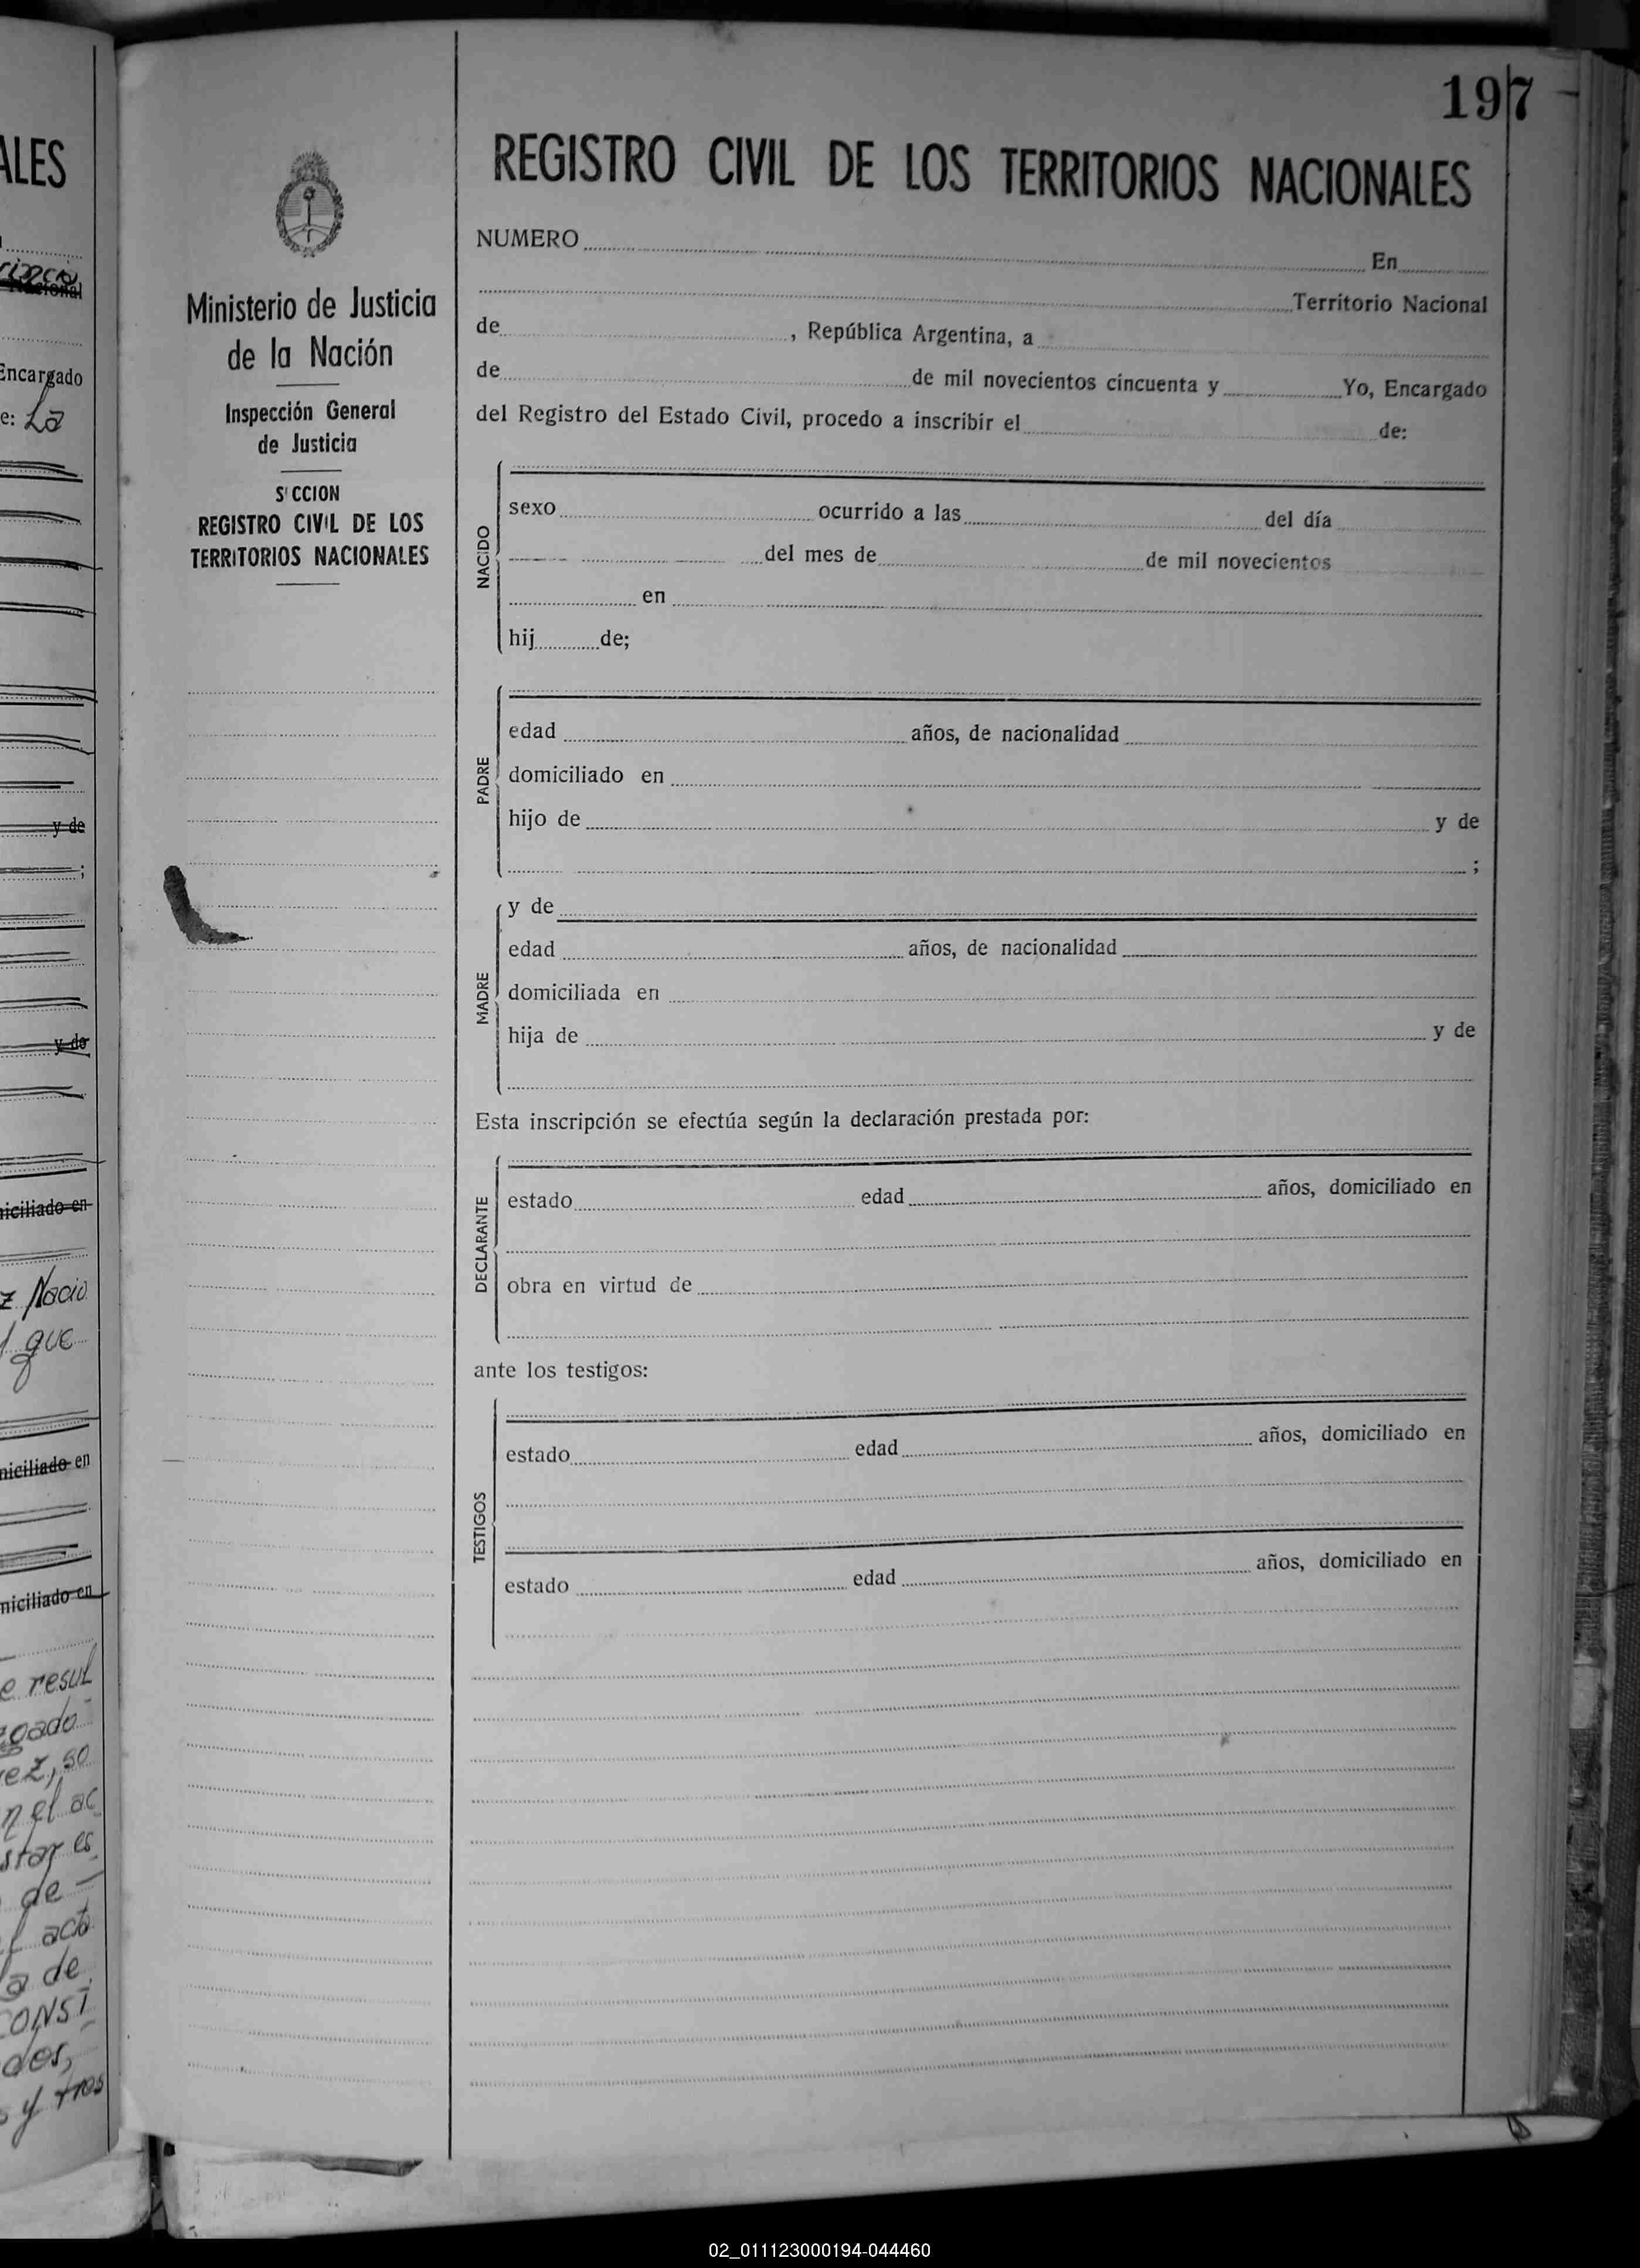 ALES
Nacional
Encargado
e: La
y de
;
y de
miciliado en
z Nacio
que
miciliado en
miciliado en
e resul
ez, so
n el ac
star es
de
acto
a de
CONSI
dos,
y tres
197
REGISTRO CIVIL DE LOS TERRITORIOS NACIONALES
Ministerio de Justicia
de la Nación
Inspección General
de Justicia
S CCION
REGISTRO CIVIL DE LOS
TERRITORIOS NACIONALES
NUMERO En
Territorio Nacional
de , República Argentina, a
de de mil novecientos cincuenta y Yo, Encargado
del Registro del Estado Civil, procedo a inscribir el de:
NACIDO
sexo ocurrido a las del día
del mes de de mil novecientos
en
hij de;
PADRE
edad años, de nacionalidad
domiciliado en
hijo de y de
;
MADRE
y de
edad años, de nacionalidad
domiciliada en
hija de y de
Esta inscripción se efectúa según la declaración prestada por:
DECLARANTE
estado edad años, domiciliado en
obra en virtud de
ante los testigos:
TESTIGOS
estado edad años, domiciliado en
estado edad años, domiciliado en
02_011123000194-044460